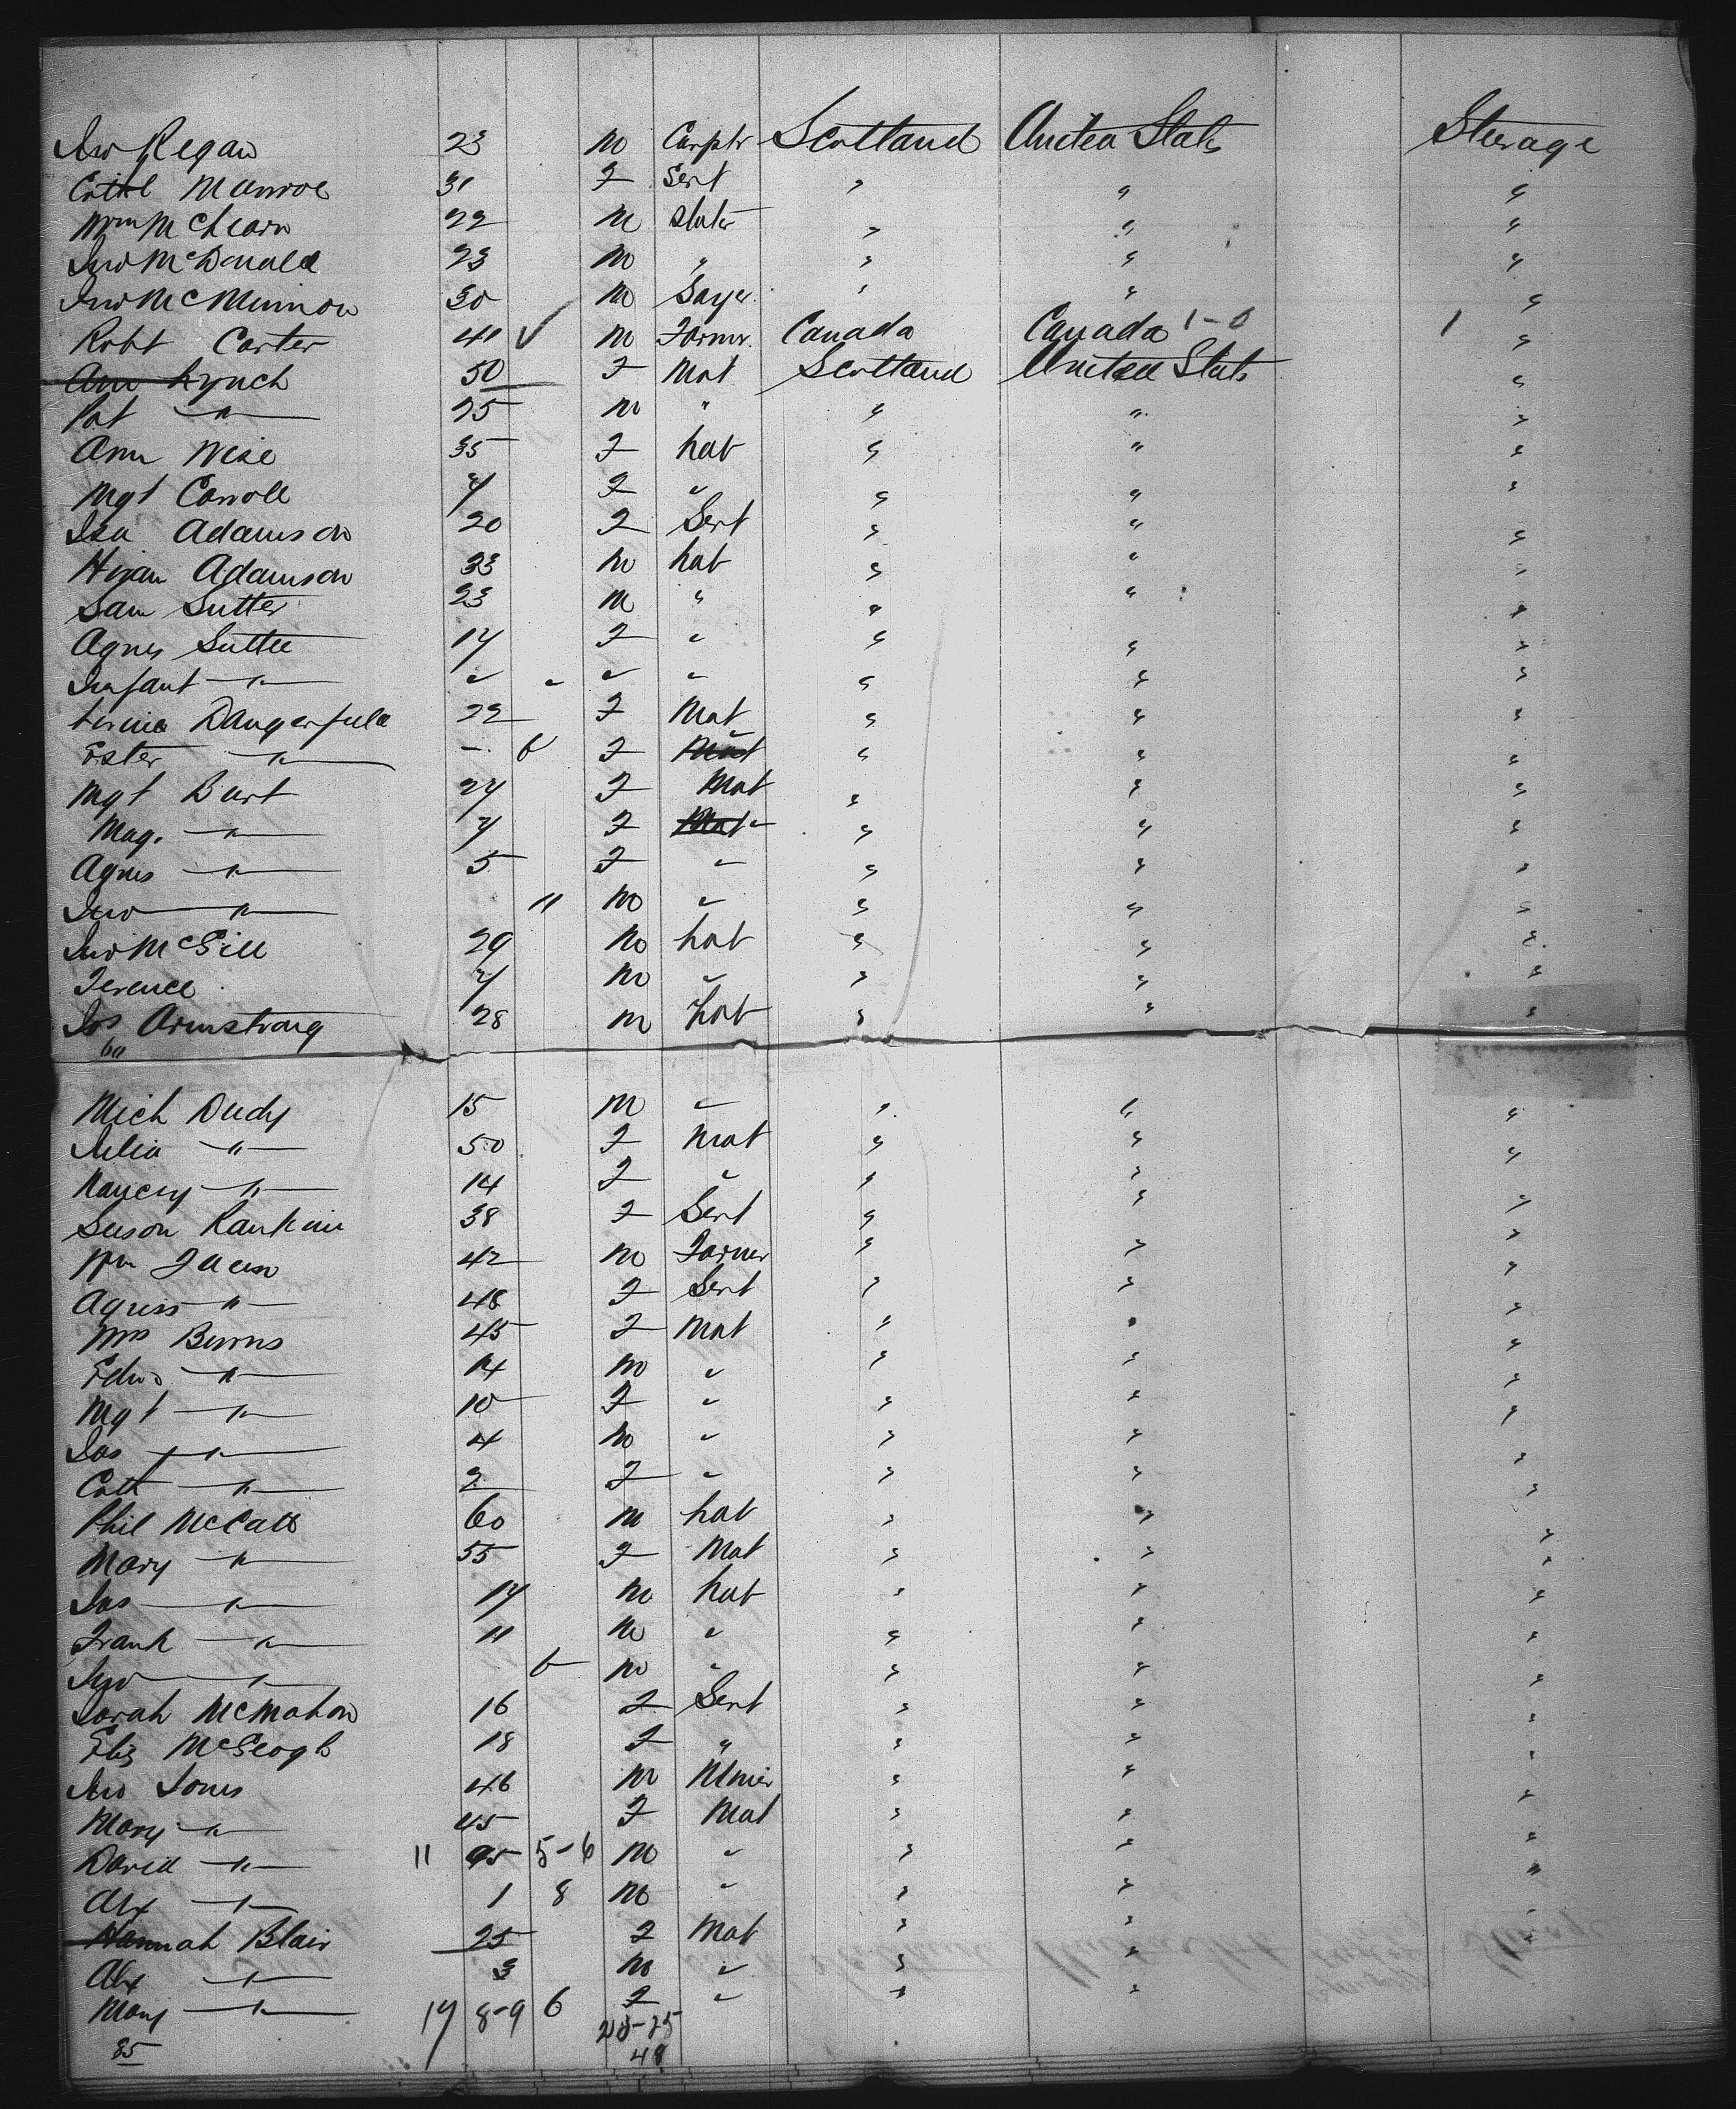 Jno Regan 23 M Carptr Scotland United States Steerage
Munroe 31 F Sert " " "
Wm McLearn 22 M Slater " " "
Jno McDonald 23 M " " " "
Jno McMinnon 30 M " " "
Robt Carter 41 ✓ M Farmr. Canada Canada 1-0 1 "
Ann Lynch 50 F Mat Scotland United States "
Pat " 25 M " " " "
Ann Wise 35 F Lab " " "
Mgt Carroll 7 F " " " "
Isa Adamson 20 F Sert " " "
Hiram Adamson 33 M Lab " " "
Sam Sutter 23 M " " " "
Agnes Suttee 17 F " " " "
Infant " " " " " " " "
Dangerfield 22 F Mat " " "
Ester " - 6 F " " " "
Mgt Burt 27 F Mat " " "
Mag. " 7 F " " " "
Agnes " 5 F " " " "
Jno " 11 M " " " "
Jno McGill 29 M Lab " " "
Terence 7 M " " " "
Jos Armstrong 28 M Lab " " "
60
Mich Dudy 15 M " " " "
Julia " 50 F Mat " " "
Nancy " 14 F " " " "
Suson Rankin 38 F Sert " " "
Wm 42 M Farmer " " "
Agness " 48 F Sert " " "
Mrs Burns 45 F Mat " " "
Edwd " 14 M " " " "
Mgt " 10 F " " " "
Jas " 4 M " " " "
Cath " 2 F " " " "
Phil McCall 60 M Lab " " "
Mary " 55 F Mat " " "
Jas " 17 M Lab " " "
Frank " 11 M " " " "
Jno " 6 M " " " "
Sarah McMahon 16 F Sert " " "
Eliz McGeogh 18 F " " " "
Jno Jones 46 M Miner " " "
Mary " 45 F Mat " " "
David " 11 5-6 M " " " "
Alx " 1 8 M " " " "
Hannah Blair 25 F Mat " " "
Alx " 3 M " " "
Mary " 17 8-9 6 F " " "
85 23-25
48